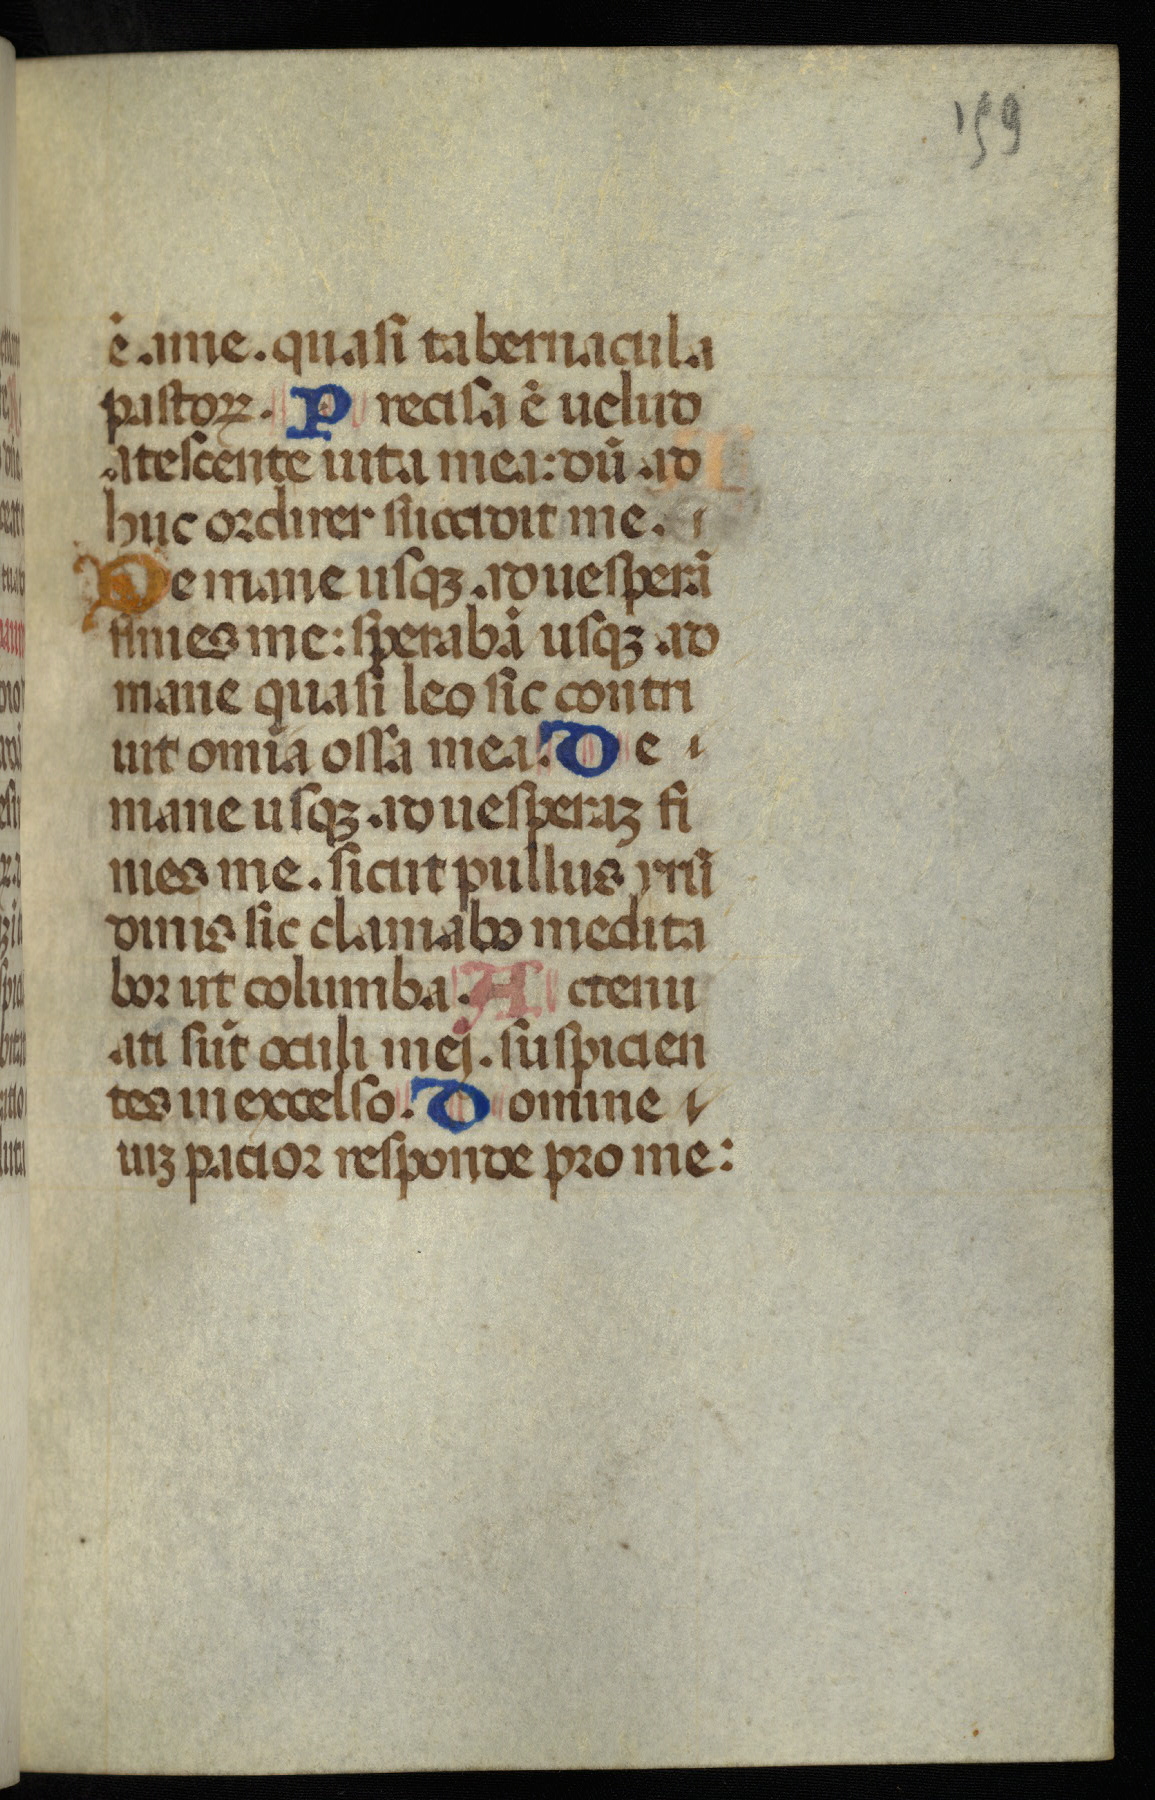 159
ē ame. quasi tabernacula
pastoꝝ. Precisa ē uelud
atescente uita mea: dū ad
huc ordirer succidit me.
De mane usqꝫ ad uesperā
finies me: sperabā usqꝫ ad
mane quasi leo sic contri
uit omīa ossa mea. De
mane usqꝫ ad uesperaꝫ fi
nies me. sicut pullus yrū
dinis sic clamabo medita
bor ut columba. Actenu
ati sūt oculi mej. suspicien
tes in excelso. Domine
uiꝫ pacior responde pro me: